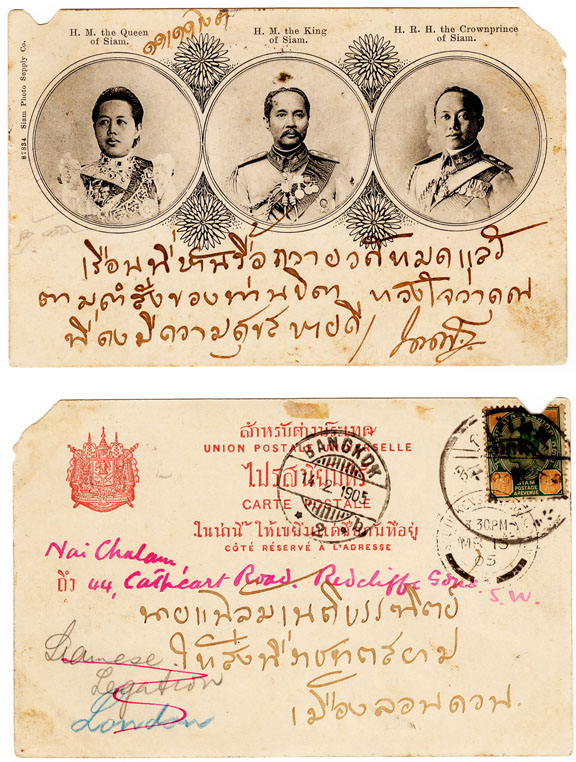 H. M. the Queen
of Siam.
H. M. the King
of Siam.
H. R. H. the Crownprince
of Siam.
87834 Siam Photo Supply Co.
เรือนพี่ท่านรื้อถวายวัดหมดแล้ว
ตามคำสั่งของท่านบิดา หวังใจว่าคุณ
พี่คงมีความศุขสบายดี
สำหรับต่างประเทศ
UNION POSTALE UNIVERSELLE
ไปรสนียบัตร
CARTE POSTALE
ในน่านี้ ให้เขียนแต่ชื่อกับที่อยู่
CÔTÉ RÉSERVÉ A L'ADRESSE
BANGKOK
14.2.1905
2
SIAM
POSTAGE
& REVENUE
3.30PM
MR 15
05
Nai Chalam
ถึง 44, Cathcart Road. Redcliffe Gdns. S.W.
นายแฉล้มเนติบรรฑิตย์
ให้ส่งที่ราชทูตสยาม
เมืองลอนดอน.
Siamese
Legation
London